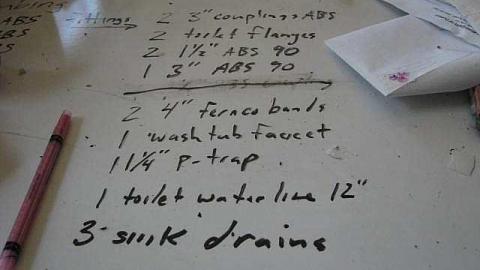 fittings 2 3" couplings ABS
2 toilet flanges
2 1½" ABS 90
1 3" ABS 90
2 4" fernco bands
1 wash tub faucet
1 1¼" P-trap
1 toilet water line 12"
3 sink drains